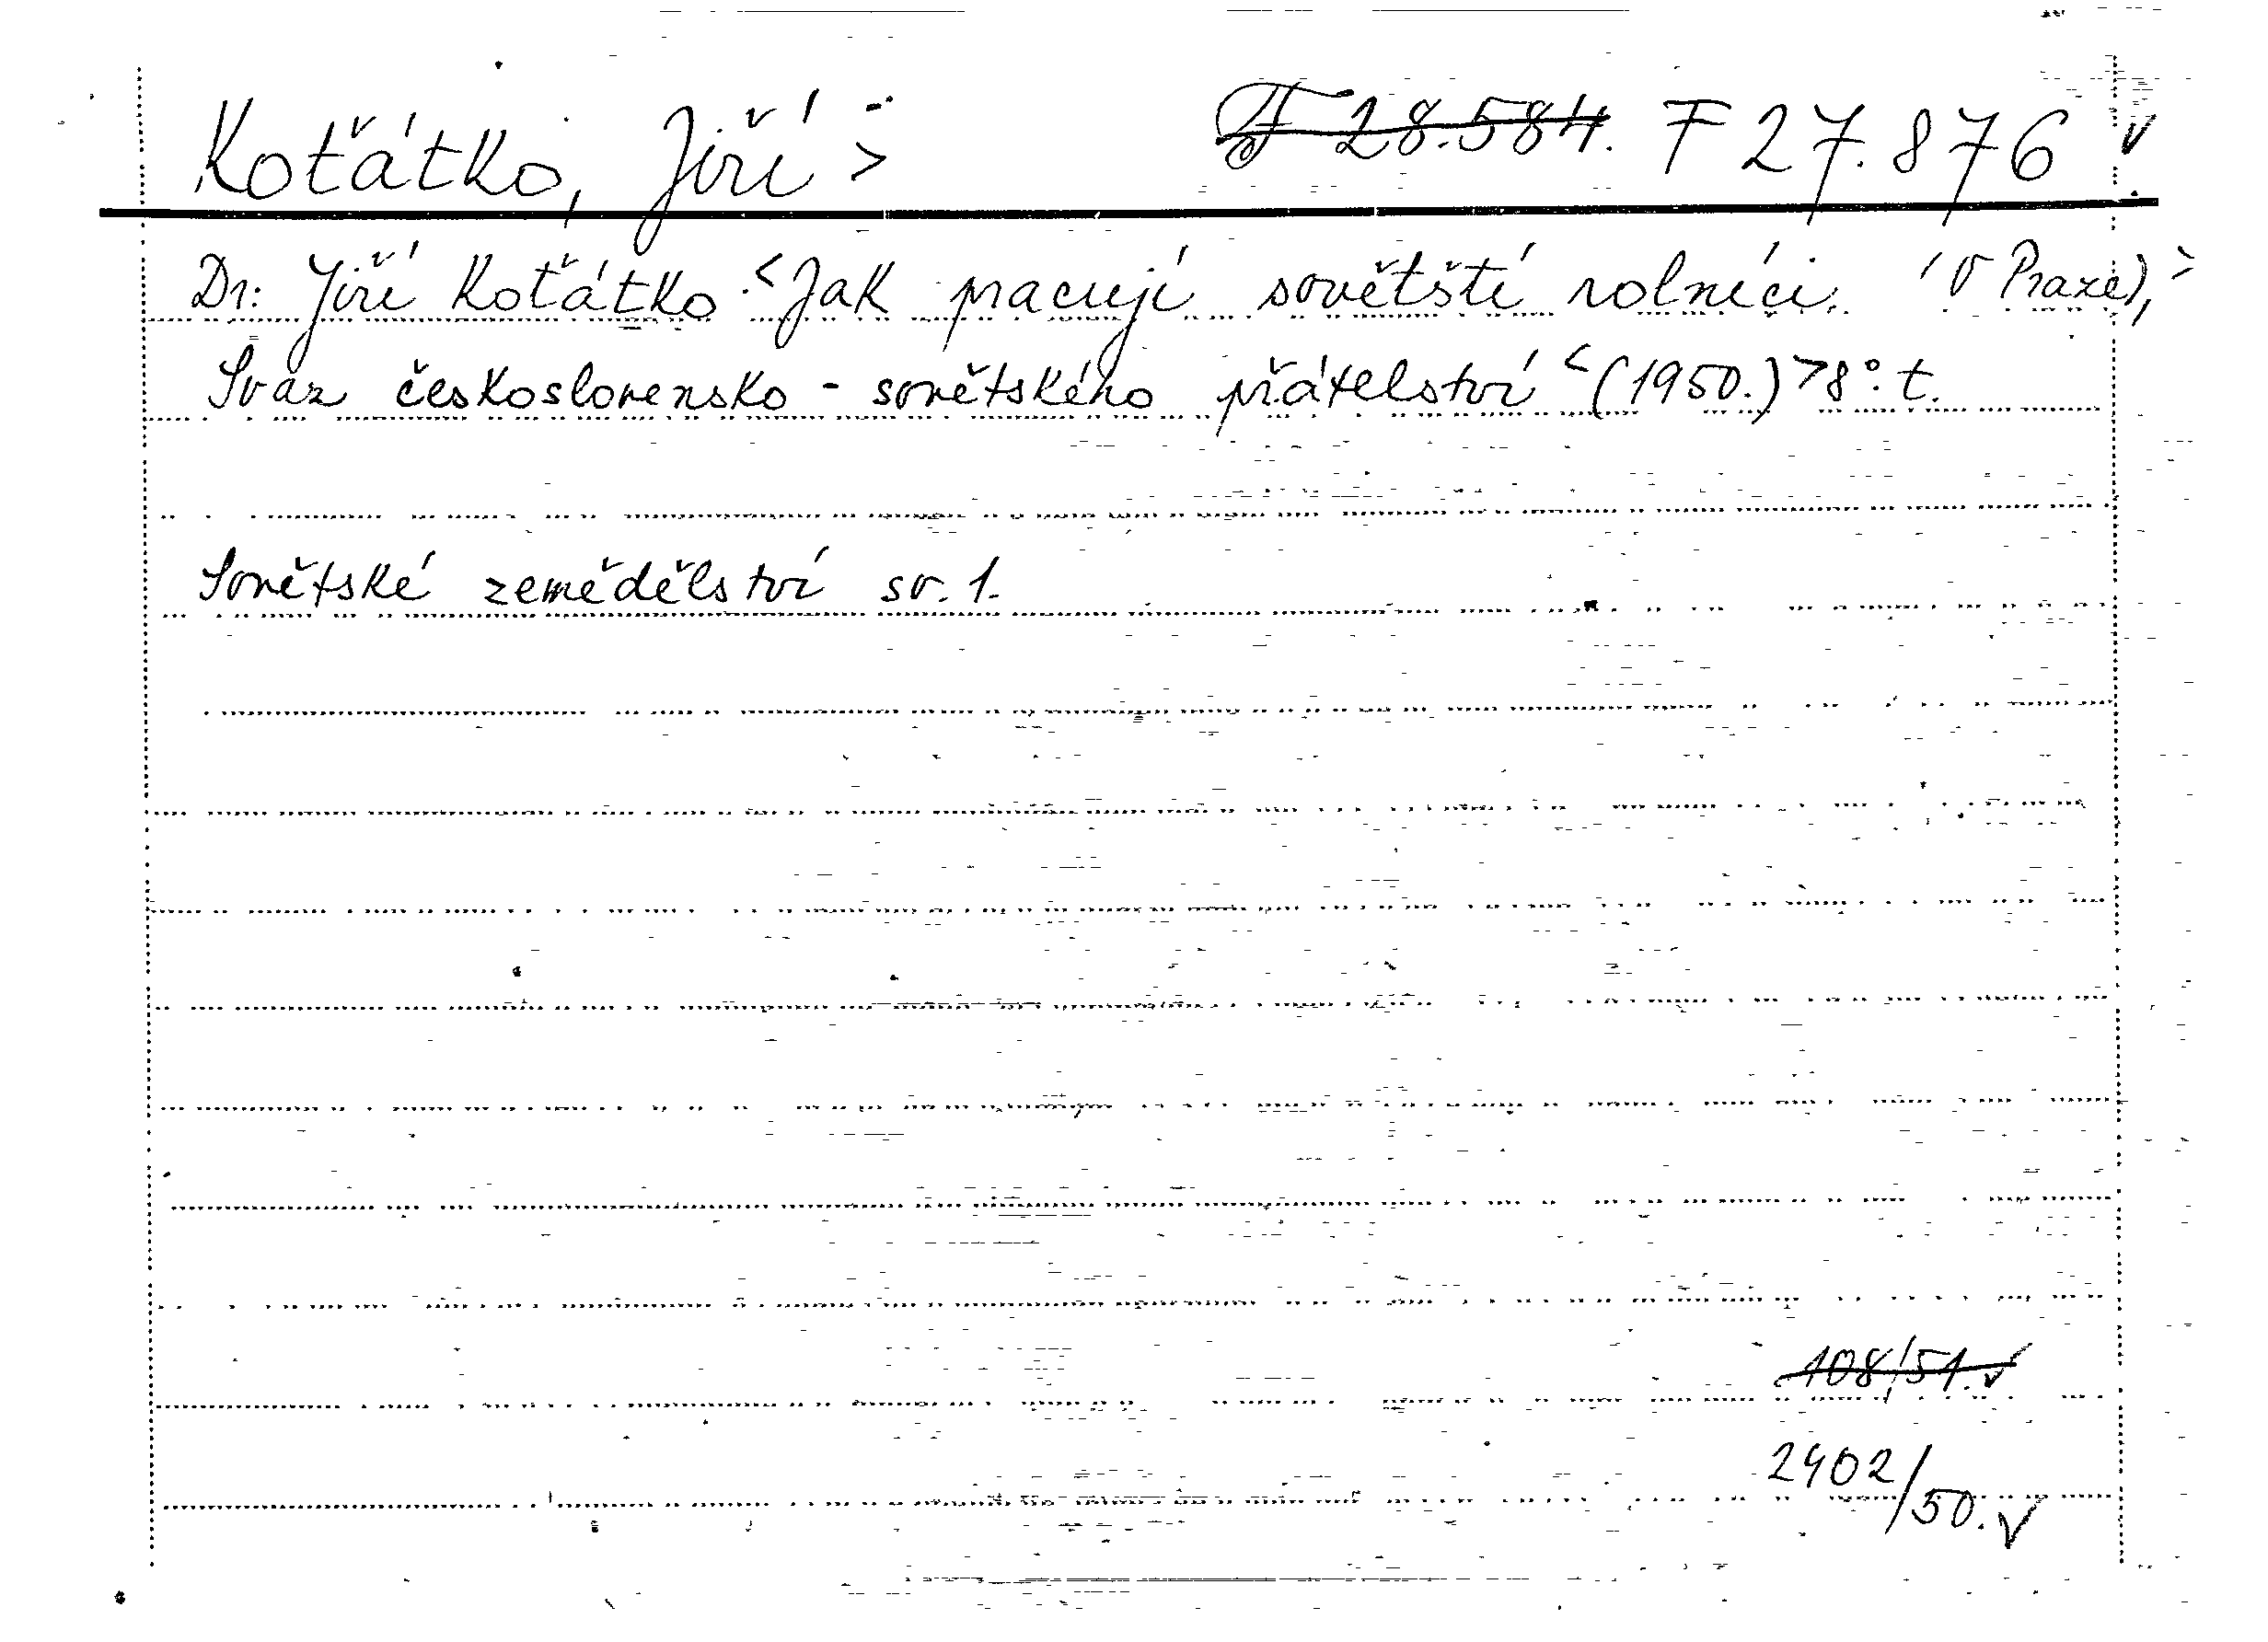 Koťátko, Jiří > F 28.584. F 27.876 v
Dr. Jiří Koťátko: < Jak pracují sovětští rolníci. (V Praze), >
Svaz československo - sovětského přátelství < (1950.) > 8° t.
Sovětské zemědělství sv. 1.
108/51. v
2402/50. v